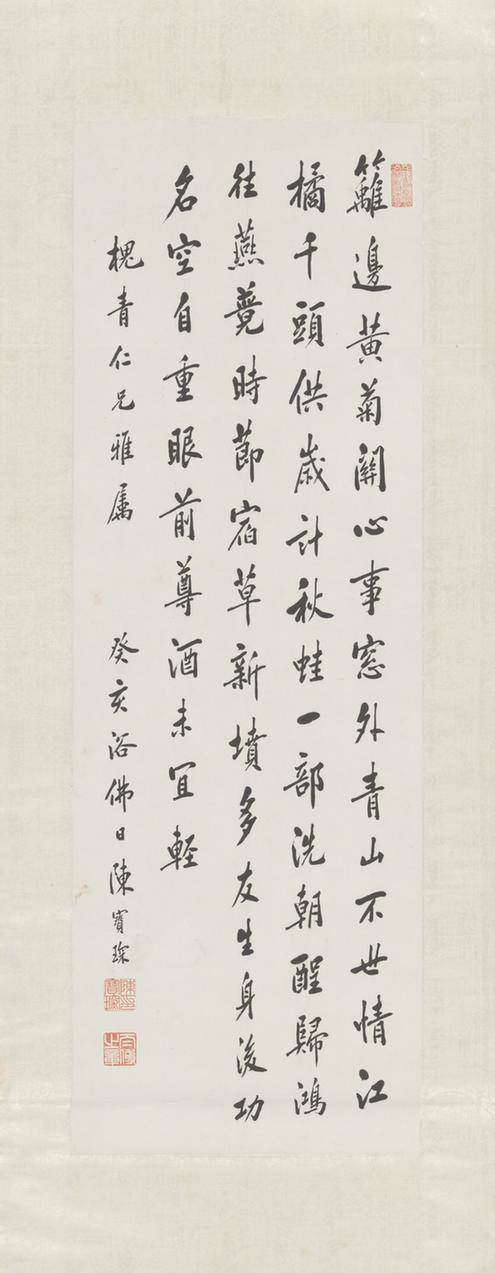 籬邊黃菊關心事窓外青山不世情江
橘千頭供歲計秋蛙一部洗朝酲歸鴻
往燕競時節宿草新墳多友生身後功
名空自重眼前尊酒未宜輕
槐青仁兄雅屬
癸亥浴佛日陳寶琛